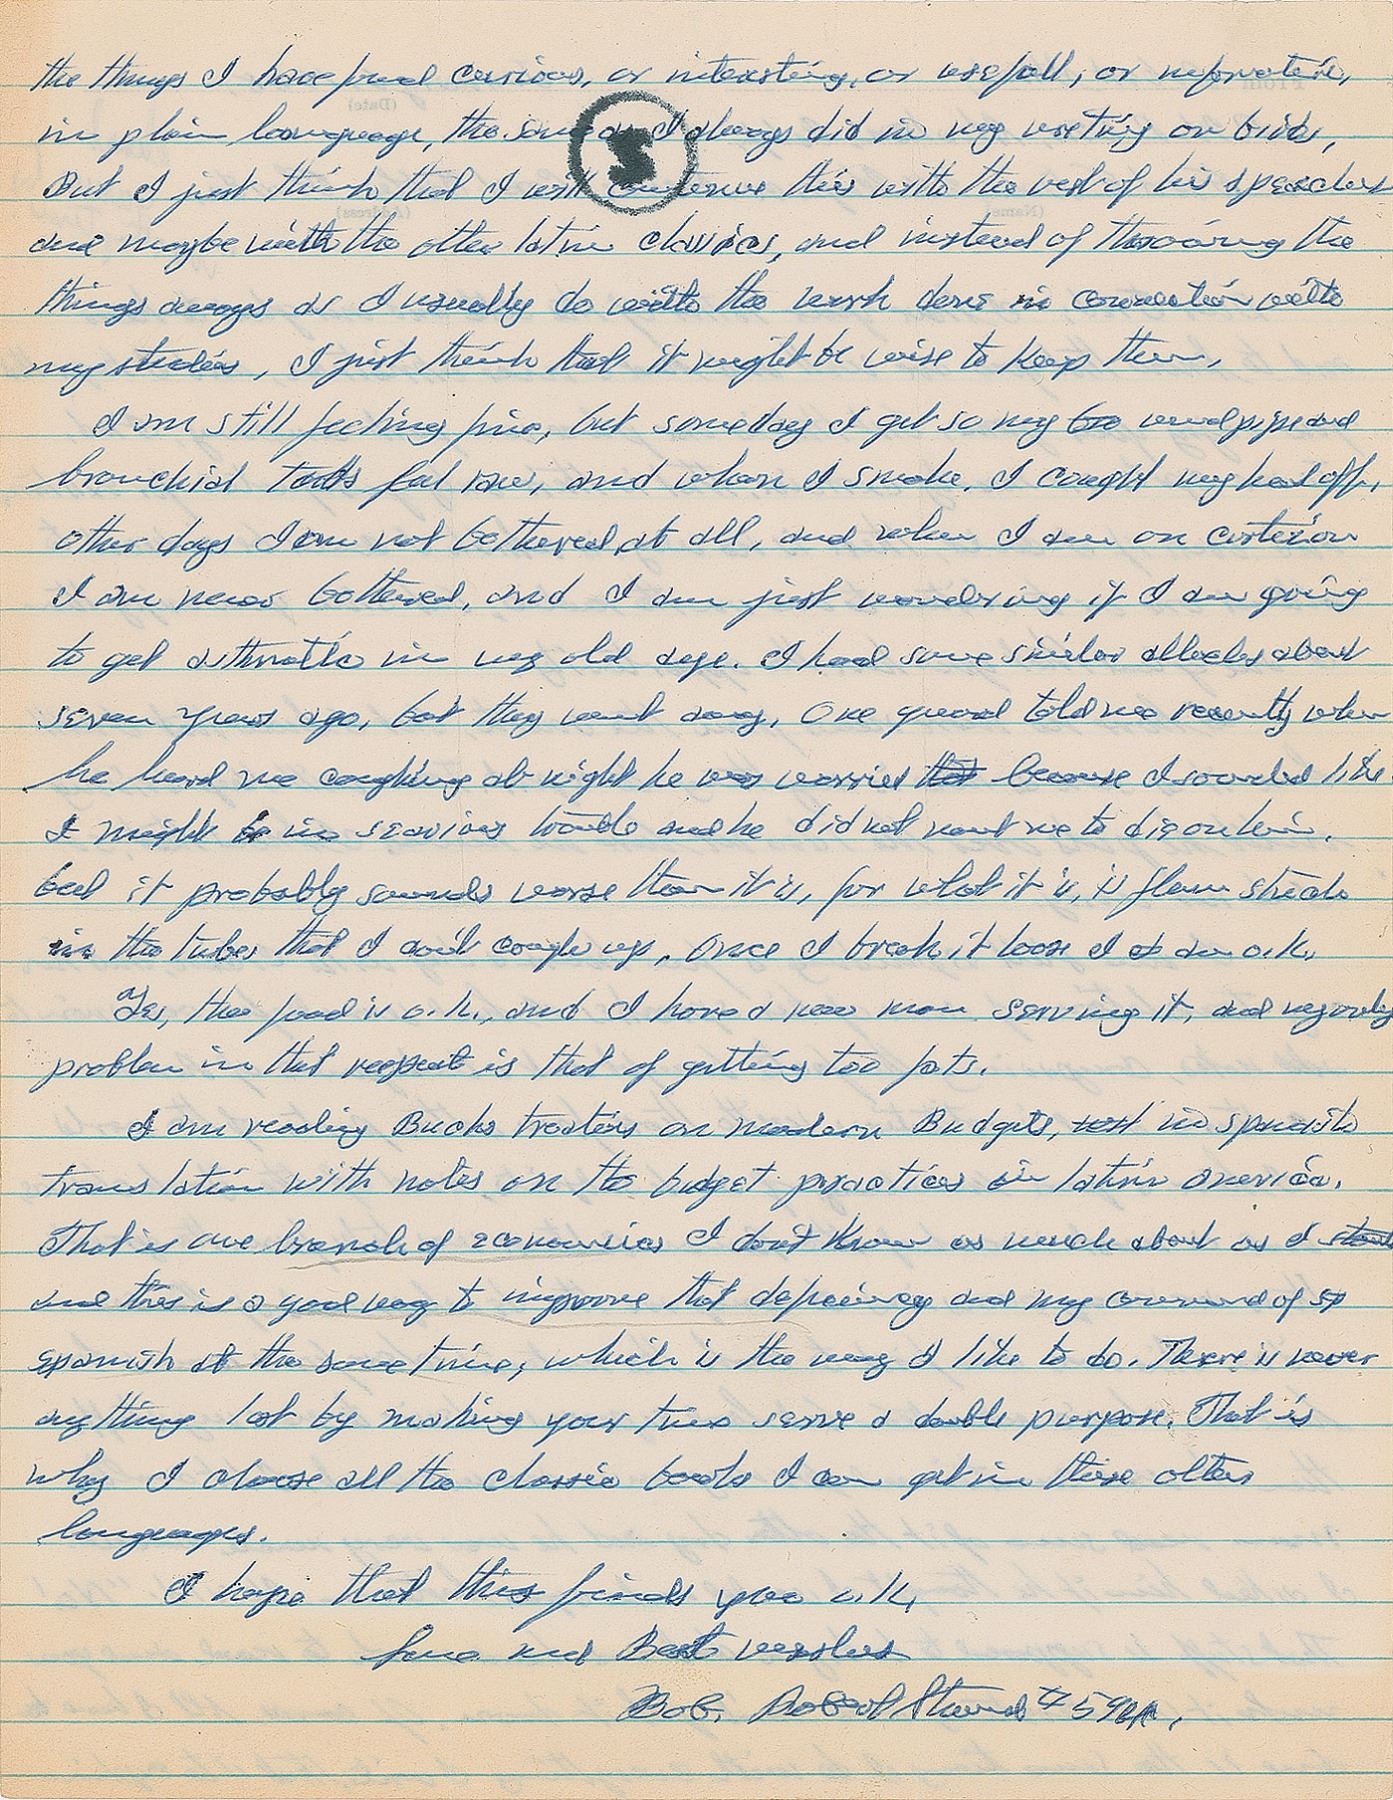 the things I have found curious, or interesting, or usefull, or informative,
in plain language, the same as I always did in my writing on birds,
But I just think that I will continue this with the rest of his speeches
and maybe with the other latin classics, and instead of throwing the
things aways as I usually do with the work done in connection with
my studies, I just think that it might be wise to keep them,
I am still feeling fine, but someday I get so my windpipe and
bronchial feel raw, and when I smoke, I cought my head off,
other days I am not bothered at all, and when I am on
I am never bothered, and I am just wondering if I am going
to get asthmatic in my old age. I had some similar attacks about
seven years ago, but they went away, One guard told me recently when
he heard me coughing at night he was worried that because I sounded like
I might be in serious trouble and he did not want me to die on him.
but it probably sounds worse than it is, for what it is, is flem
in the tubes that I can't cough up, Once I break it loose I am o.k.
Yes, the food is o.k., and I have a new man serving it, and my only
problem in that respect is that of getting too fat.
I am reading Bucks on modern Budgets, in spanish
translation with notes on the budget practices in latin America.
That is one branch of economics I don't know as much about as I
and this is a good way to improve that and my command of sp
spanish at the same time, which is the way I like to do. There is never
anything lost by making your time serve a double purpose. That is
why I choose all the classic books I can get in these other
languages.
I hope that this finds you o.k,
Love and Best wishes
Bob. Robert Stroud #594Az,
S
(Date)
From
(Name)
(Address)